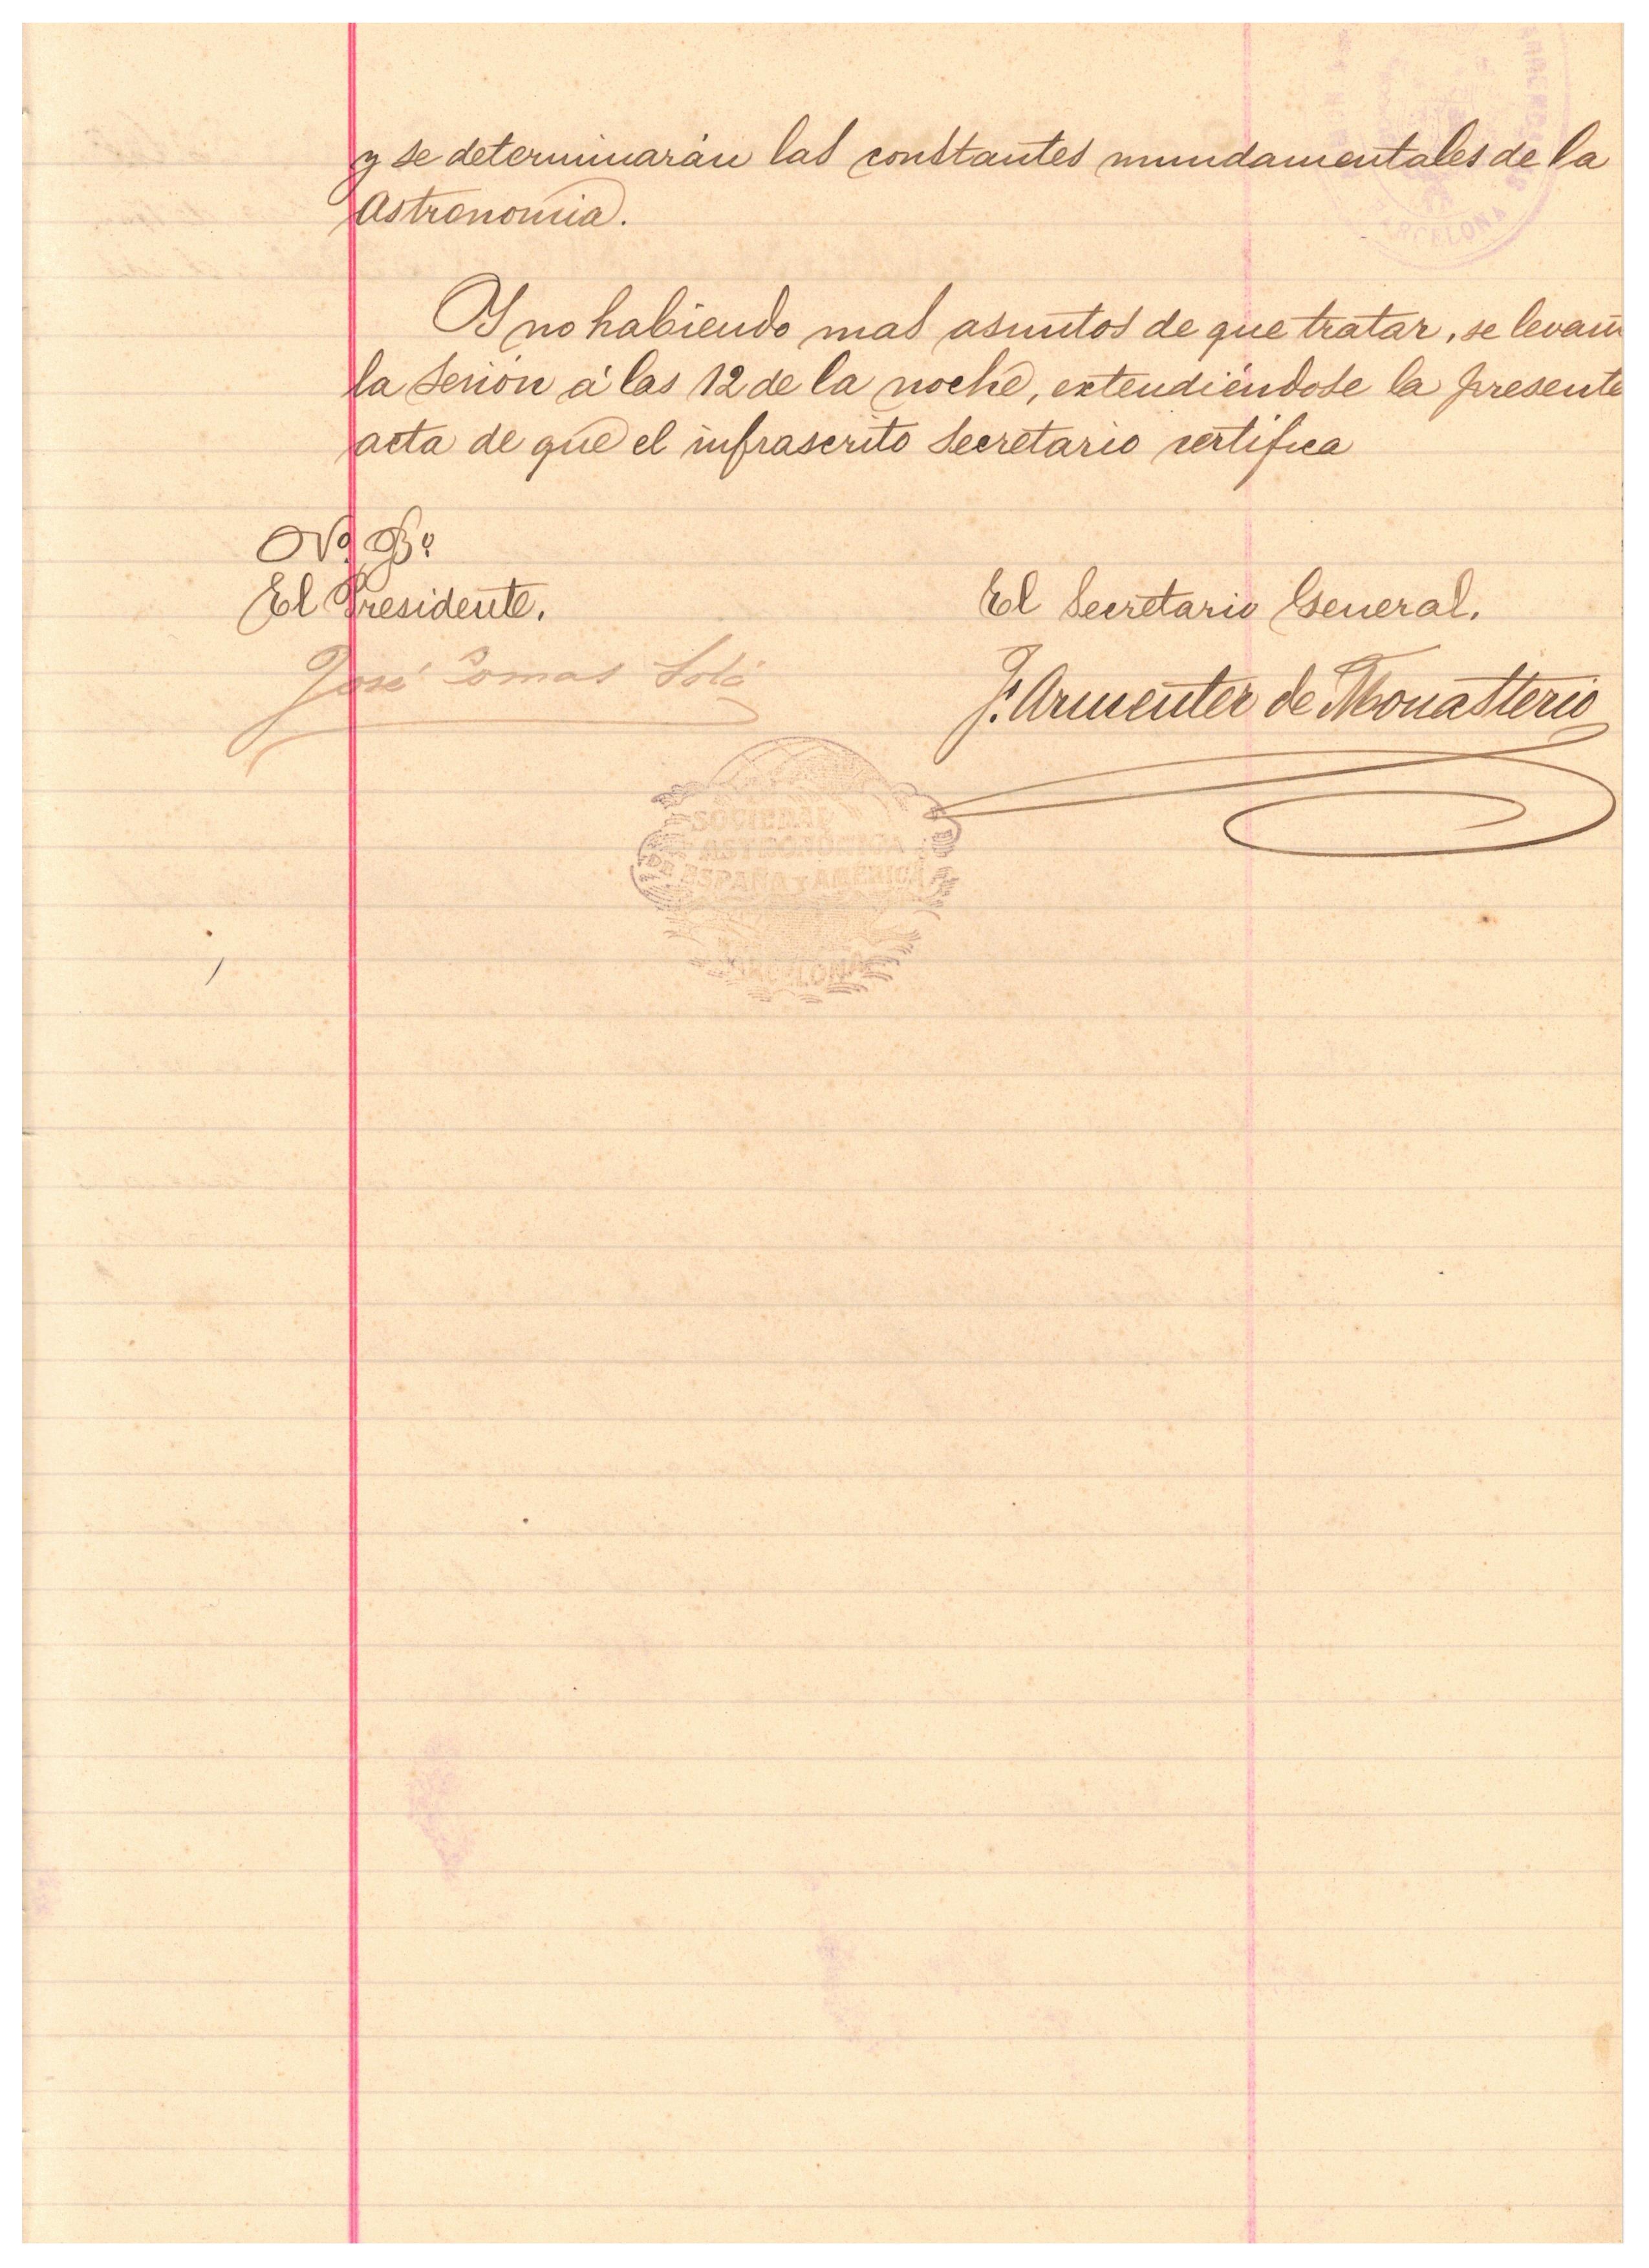 y se determinarán las constantes mundamentales de la
Astronomia.
Y no habiendo mas asuntos de que tratar, se levan
la sesión á las 12 de la noche, extendiéndose la presente
acta de que el infrascrito Secretario certifica
Vº Bº
El Presidente.
El Secretario General.
José Comas Solá
F. Armenter de Monasterio
SOCIEDAD
ASTRONÓMICA
DE ESPAÑA Y AMÉRICA
BARCELONA
BARCELONA